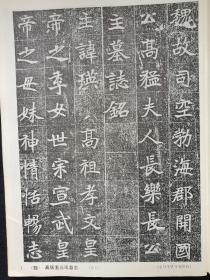 魏故司空勃海郡開國
公高猛夫人長樂長公
主墓誌銘
主諱瑛高祖孝文皇
帝之季女世宗宣武皇
帝之母妹神情恬暢志